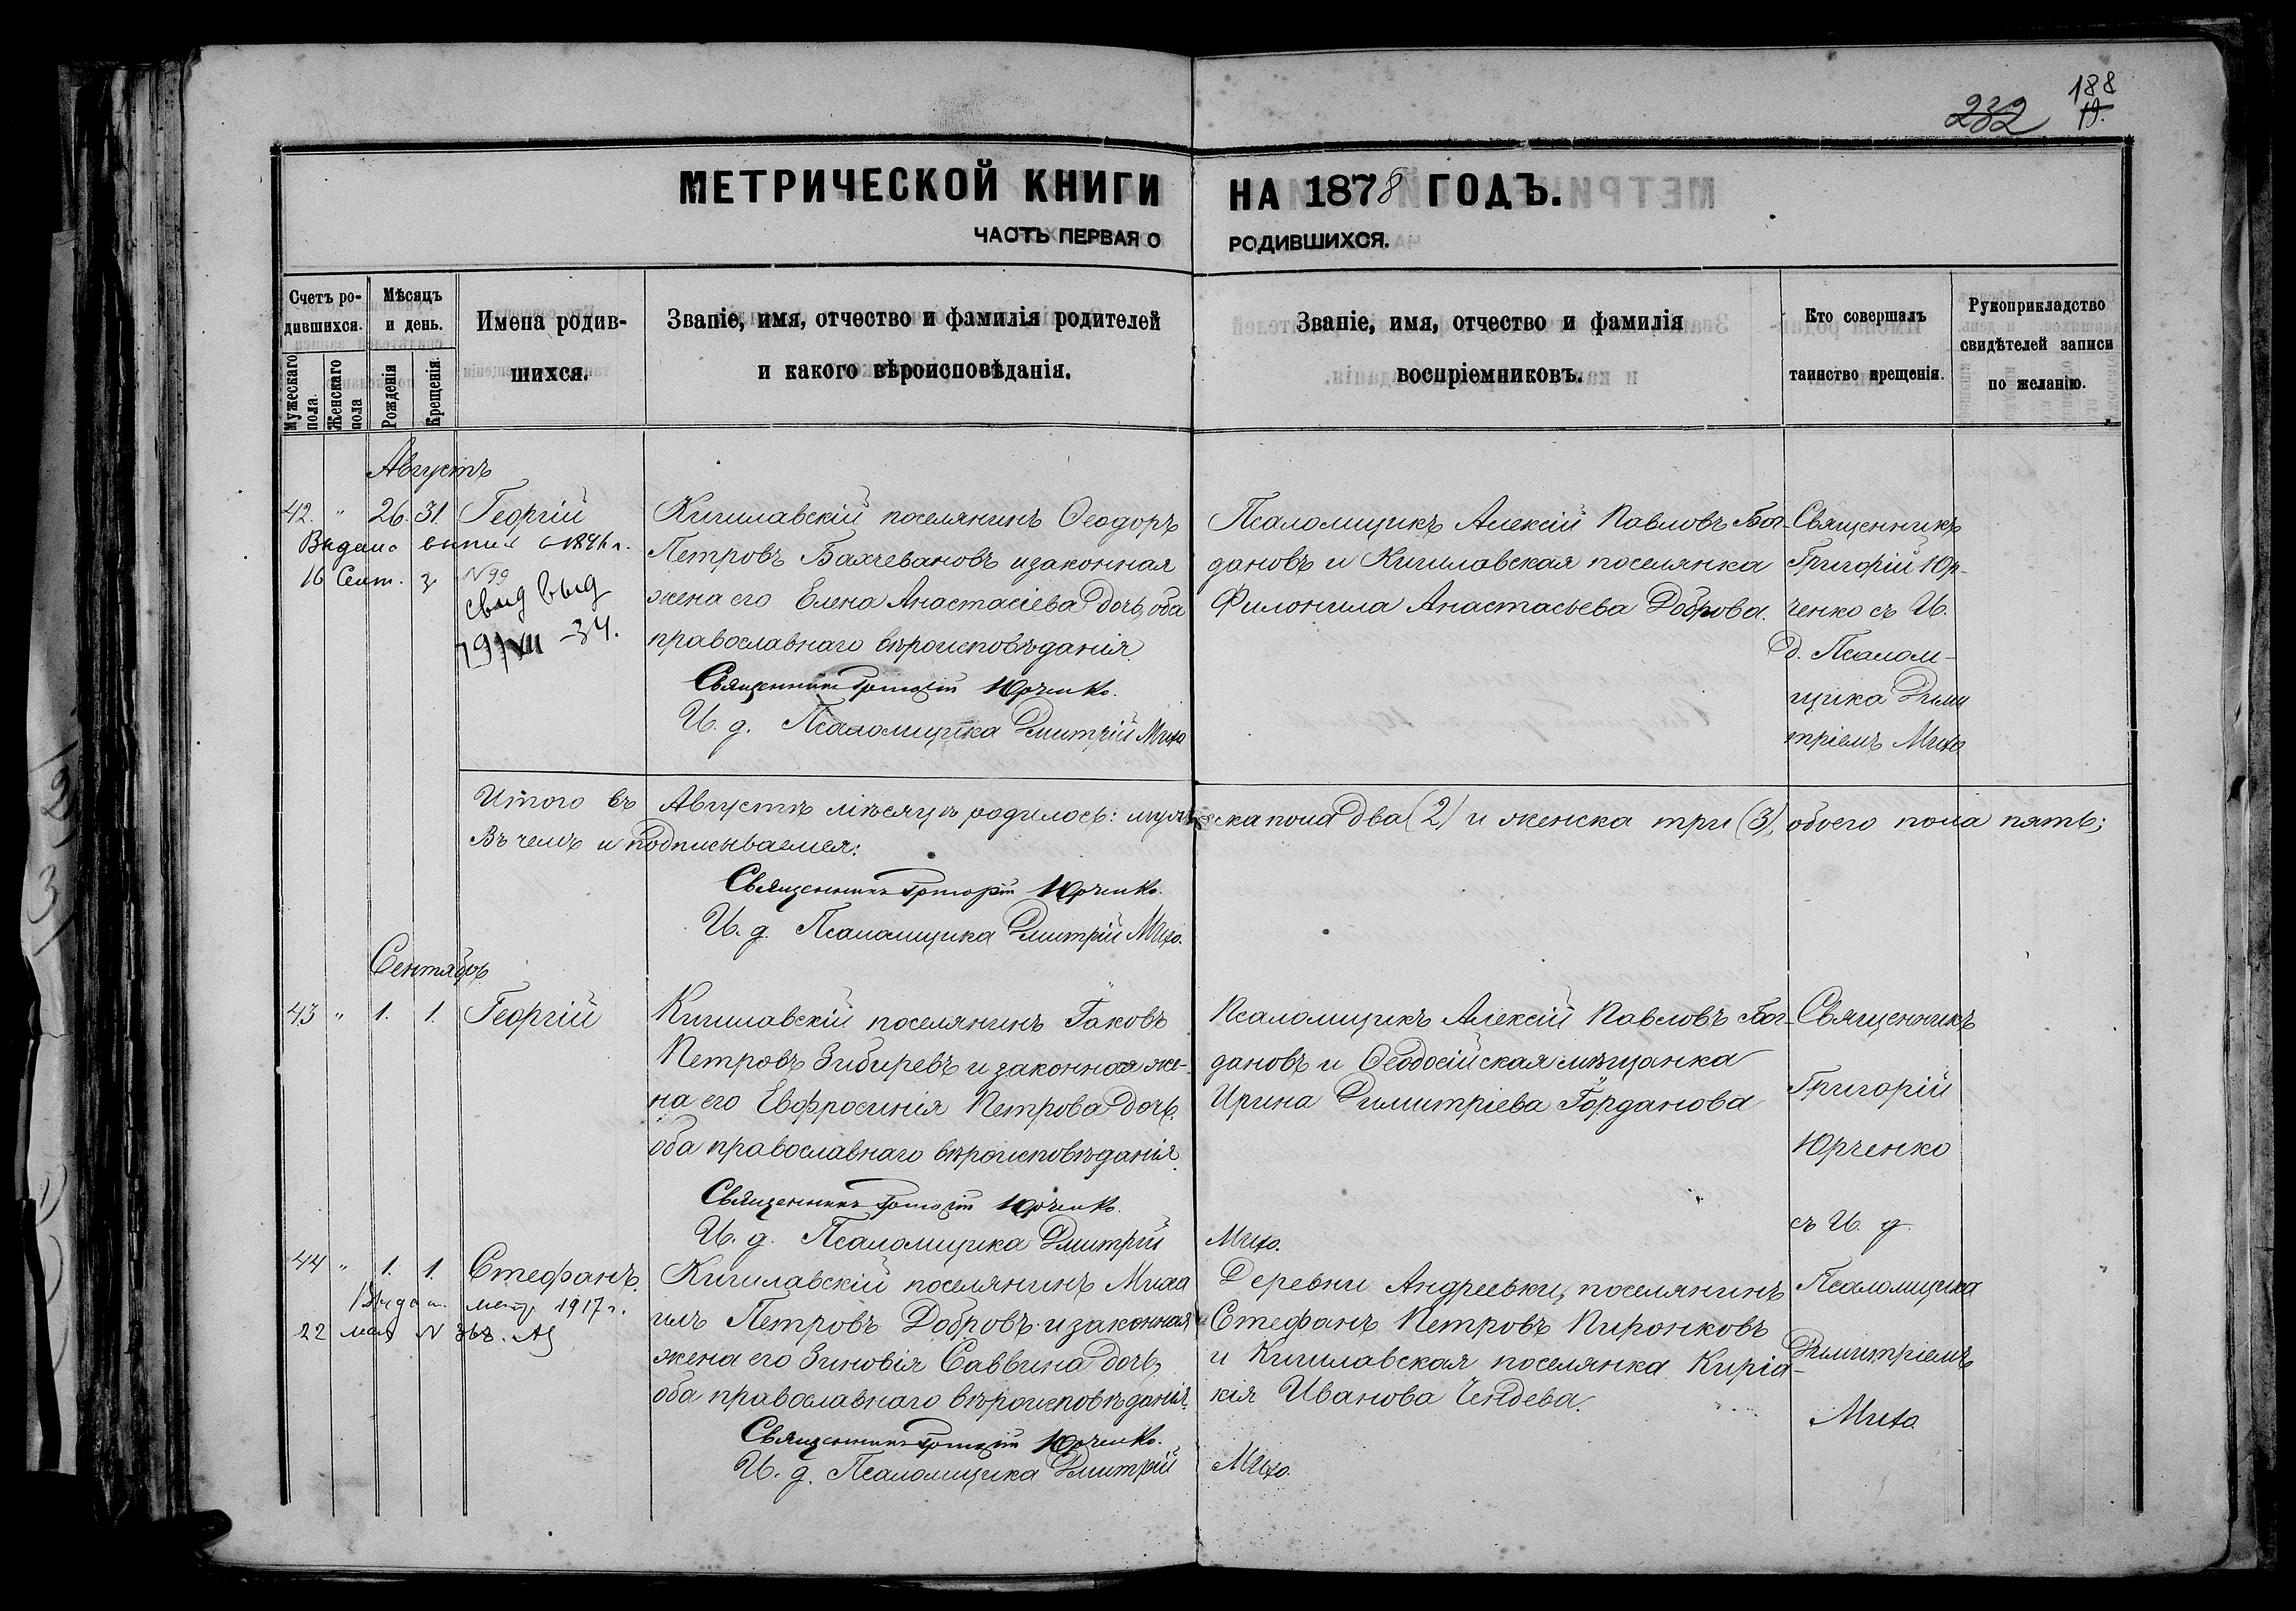 188
232 19.
МЕТРИЧЕСКОЙ КНИГИ НА 1878 ГОДЪ.
ЧАСТЬ ПЕРВАЯ О РОДИВШИХСЯ.
Счетъ ро-
дившихся.
Мужескаго пола.
Женскаго пола
Мѣсяцъ
и день.
Рожденія
Крещенія.
Имена родив-
шихся.
Званіе, имя, отчество и фамилія родителей
и какого вѣроисповѣданія.
Званіе, имя, отчество и фамилія
воспріемниковъ.
Кто совершалъ
таинство крещенія.
Рукоприкладство
свидѣтелей записи
по желанію.
Августъ
42. " 26. 31. Георгій
Выдана
16 Сент.
N 99
свид выд
19/VII -34.
Кишлавскій поселянинъ Ѳеодоръ
Петровъ Бахчевановъ и законная
жена его Елена Анастасіева дочь, оба
православнаго вѣроисповѣданія.
Священникъ Григорій Юрченко.
И. д. Псаломщика Дмитрій Михо
Псаломщикъ Алексій Павловъ Бог-
дановъ и Кишлавская поселянка
Филонила Анастасьева Доброва.
Священникъ
Григорій Юр-
ченко съ И.
д. Псалом-
щика Дими
тріемъ Михо
Итого въ Августѣ мѣсяцѣ родилось: мужеска пола два (2) и женска три (3), обоего пола пять;
Въ чемъ и подписываемся:
Священникъ Григорій Юрченко.
И. д. Псаломщика Дмитрій Михо.
Сентябрь
43 " 1. 1. Георгій
Кишлавскій поселянинъ Іаковъ
Петровъ Зибиревъ и законная же-
на его Евфросинія Петрова дочь,
оба православнаго вѣроисповѣданія.
Священникъ Григорій Юрченко.
И. д. Псаломщика Дмитрій Михо.
Псаломщикъ Алексій Павловъ Бог-
дановъ и Ѳеодосійская мѣщанка
Ирина Димитріева Іорданова
Священникъ
Григорій
Юрченко
съ И. д.
Псаломщика
Димитріемъ
Михо
44 " 1. 1. Стефанъ.
Выдан. метр 1917 г.
22 мая N 368.
Кишлавскій поселянинъ Миха
илъ Петровъ Добровъ и законная
жена его Зиновія Саввина дочь,
оба православнаго вѣроисповѣданія.
Священникъ Григорій Юрченко.
И. д. Псаломщика Дмитрій Михо.
Деревни Андреевки, поселянинъ
Стефанъ Петровъ Пиронковъ
и Кишлавская поселянка Киріа-
кія Иванова Чендева.